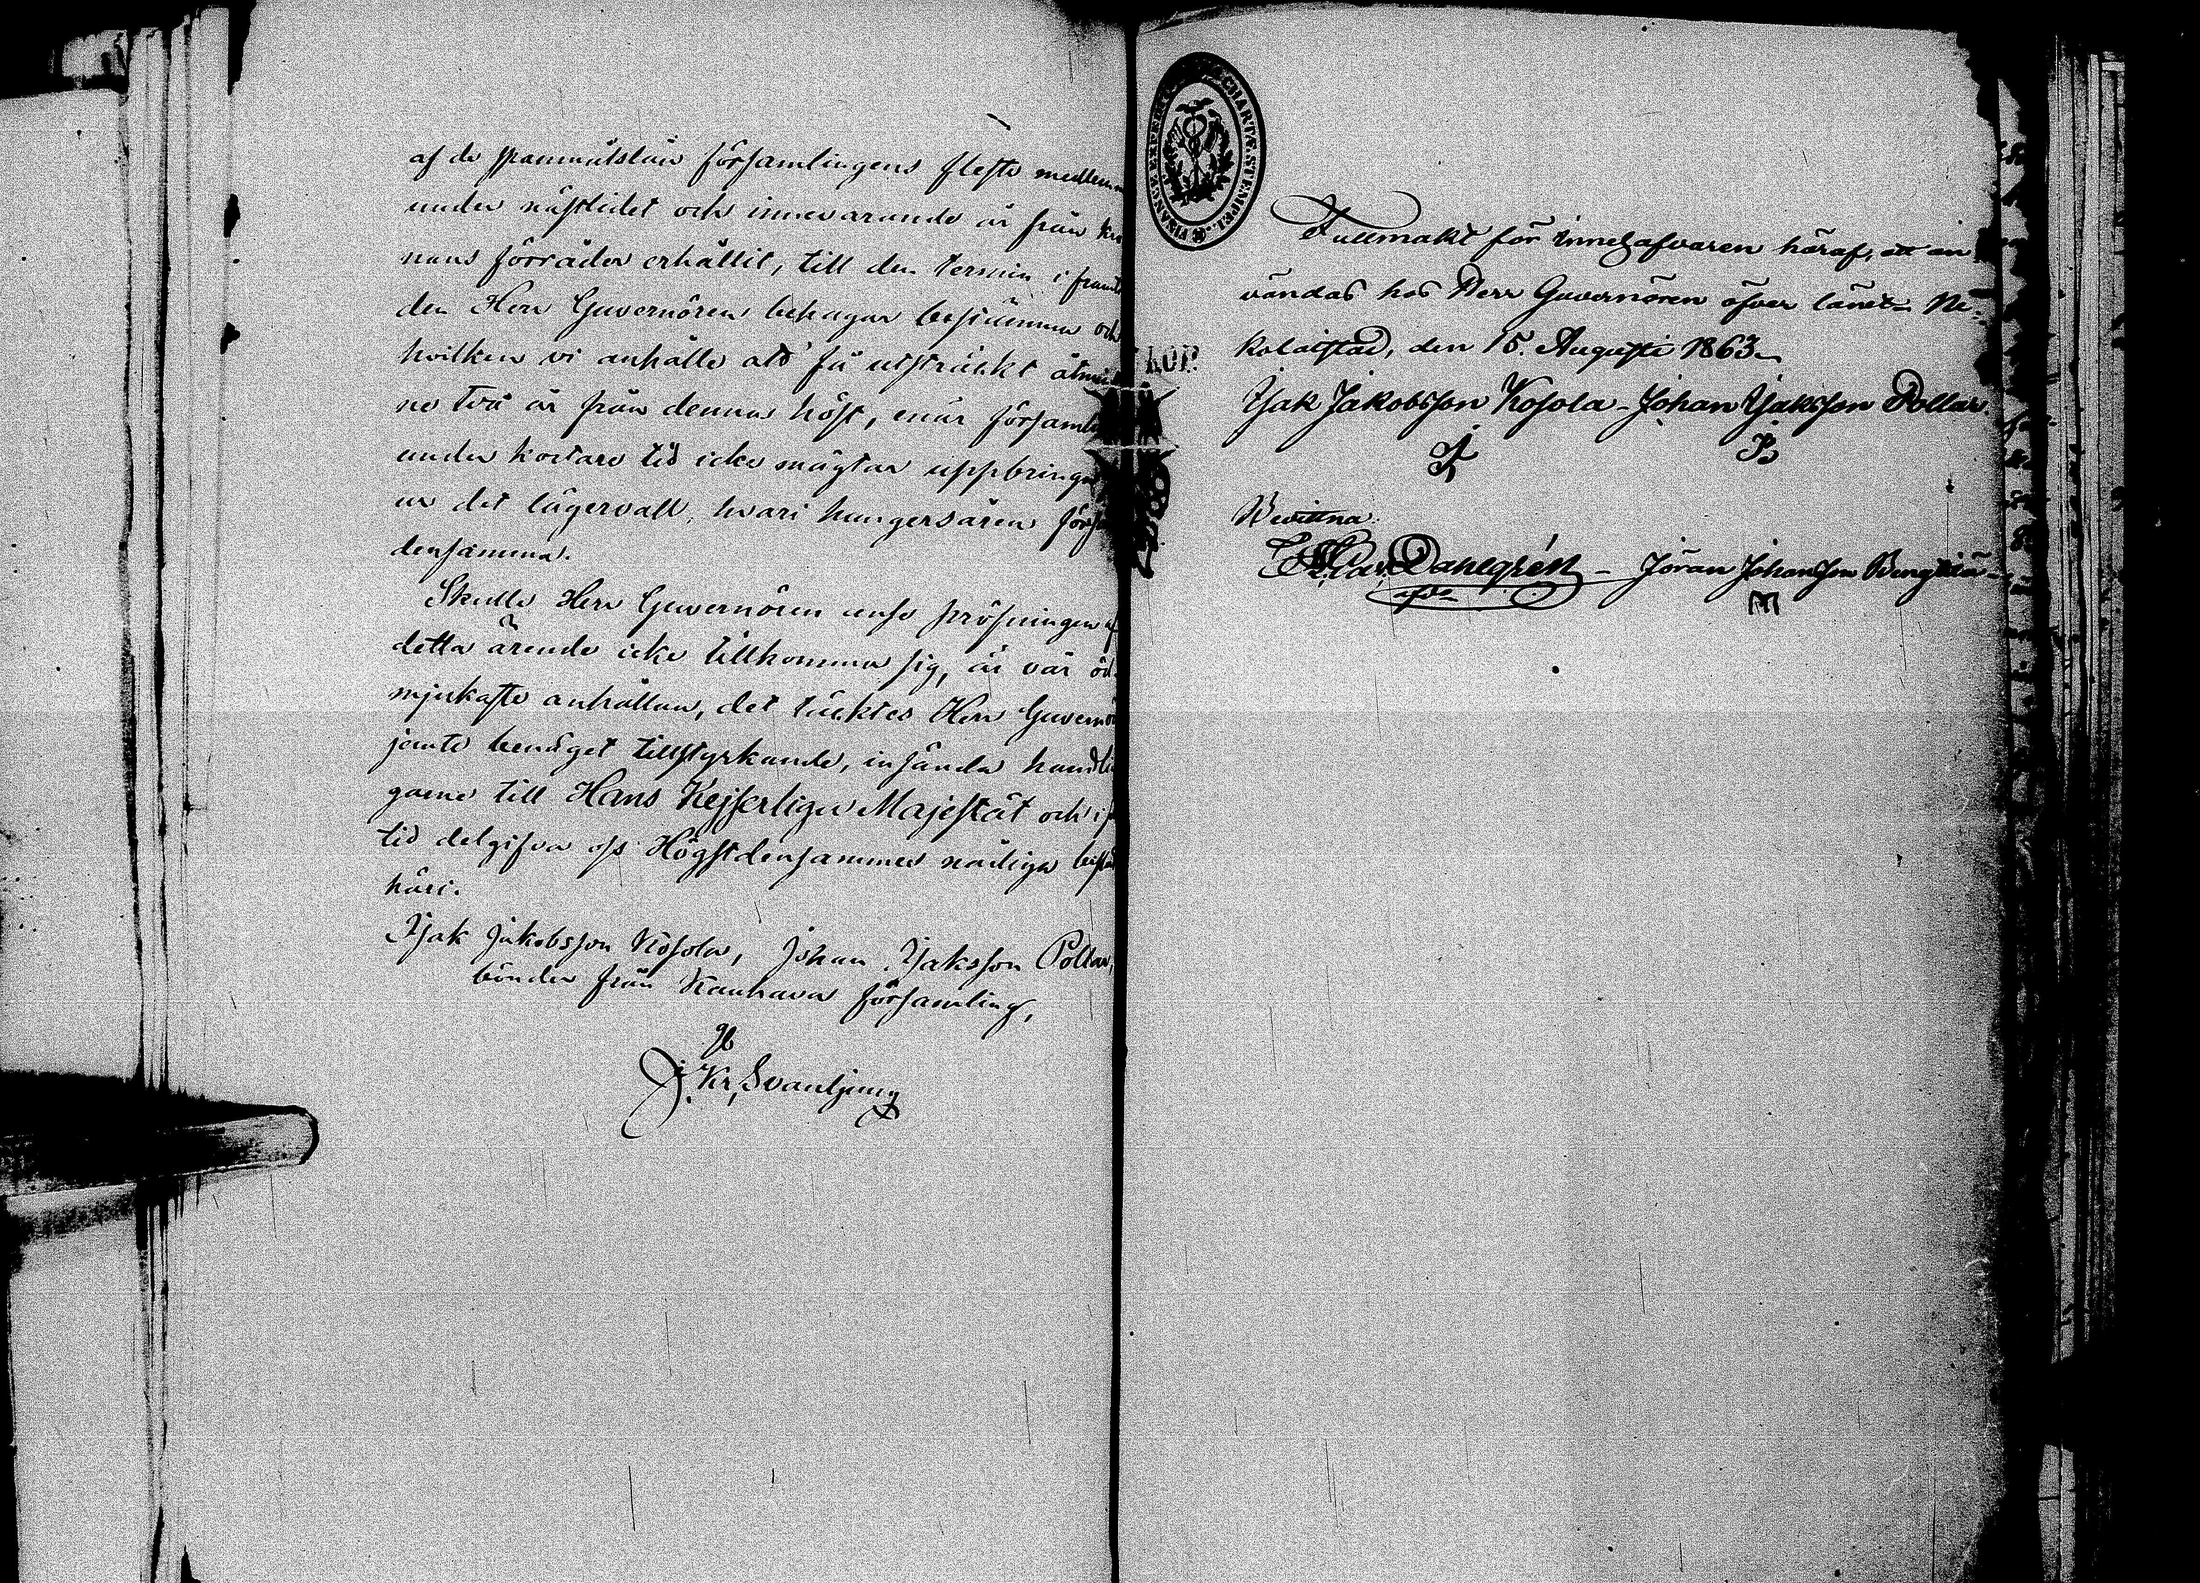 af de spannmålslån församlingens fleste medlem
under nästlidet och innevarande år från kro
nans förråder erhållit, till den termin i framti
den Herr Guvernören behagar bestämma och
hvilken vi anhålle att få utsträckt åtmin
ne två år från denna höst, enär församli
under kortare tid icke mägtar uppbringa
ur det lägervall, hvari hungersåren förs
densamma.
Skulle Herr Guvernören anse pröfningen af
detta ärende icke tillkomma sig, är vår öd
mjukaste anhållan, det täcktes Herr Guvernö
jemte benäget tillstyrkande, insända handlin
garne till Hans Kejserliga Majestät och i
tid delgifva oss Högstdensammes nådiga
häri.
Isak Jakobsson Kosola, Johan Isaksson Pollar,
bönder från Kauhava församling,
J. Kr. Svanljung
CHARTÆ STEMPEL.
KOP.
Fullmakt för innehafvaren häraf, att an
vändas hos Herr Guvernören öfver länet. Ni-
kolaistad, den 15. Augusti 1863.
Isak Jakobsson Kosola - Johan Isaksson Pollar.
Bevittna:
Danegrén - Jöran Johansson